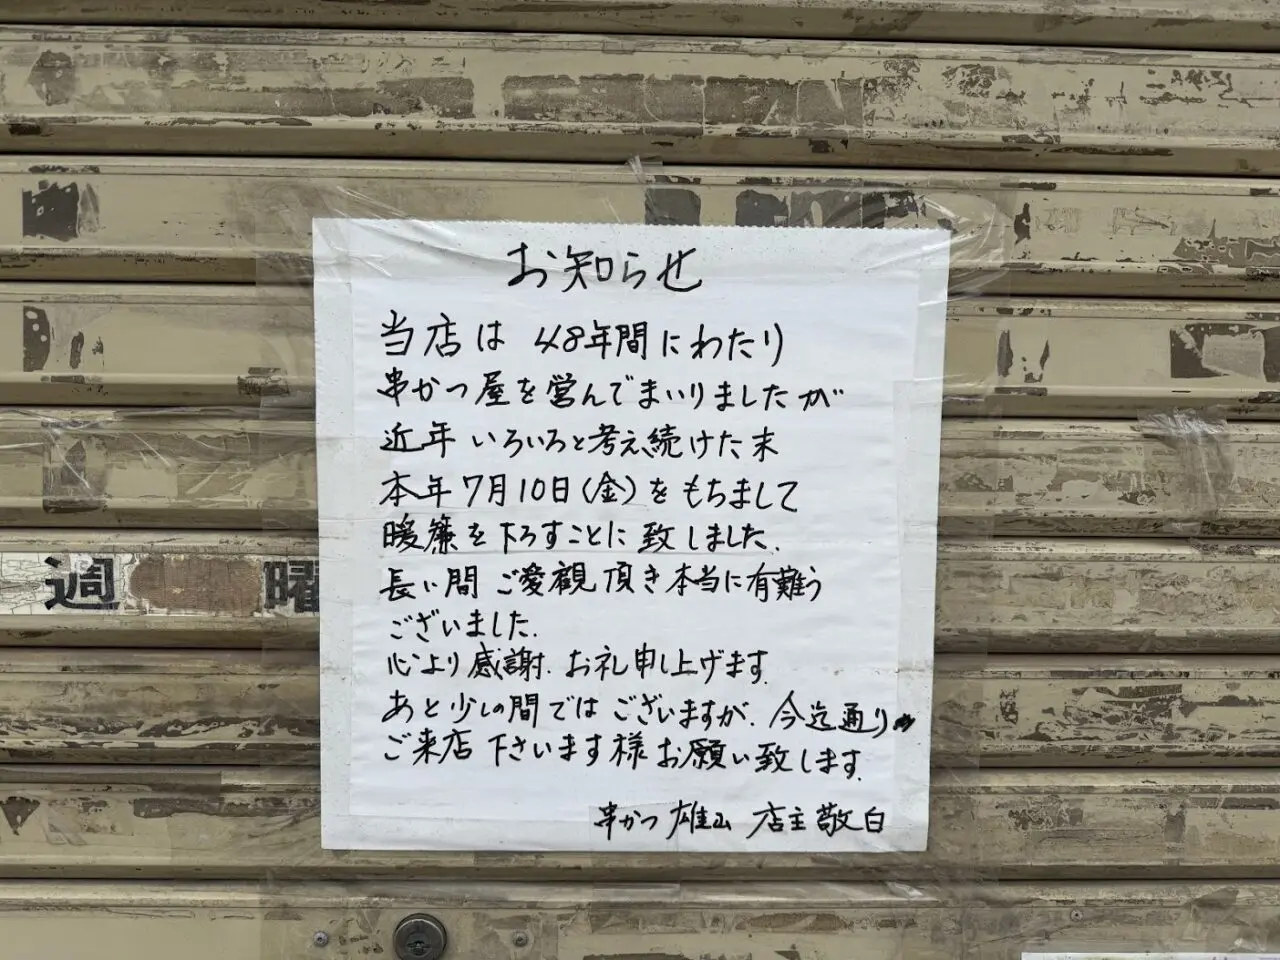 お知らせ
当店は 48年間にわたり
串かつ屋を営んでまいりましたが
近年 いろいろと考え続けた末
本年7月10日(金)をもちまして
暖簾を下ろすことに致しました.
長い間 ご愛観頂き本当に有難う
ございました.
心より感謝.お礼申し上げます.
あと少しの間ではございますが.今迄通り
ご来店下さいます様お願い致します.
串かつ 雄山 店主敬白
週 曜